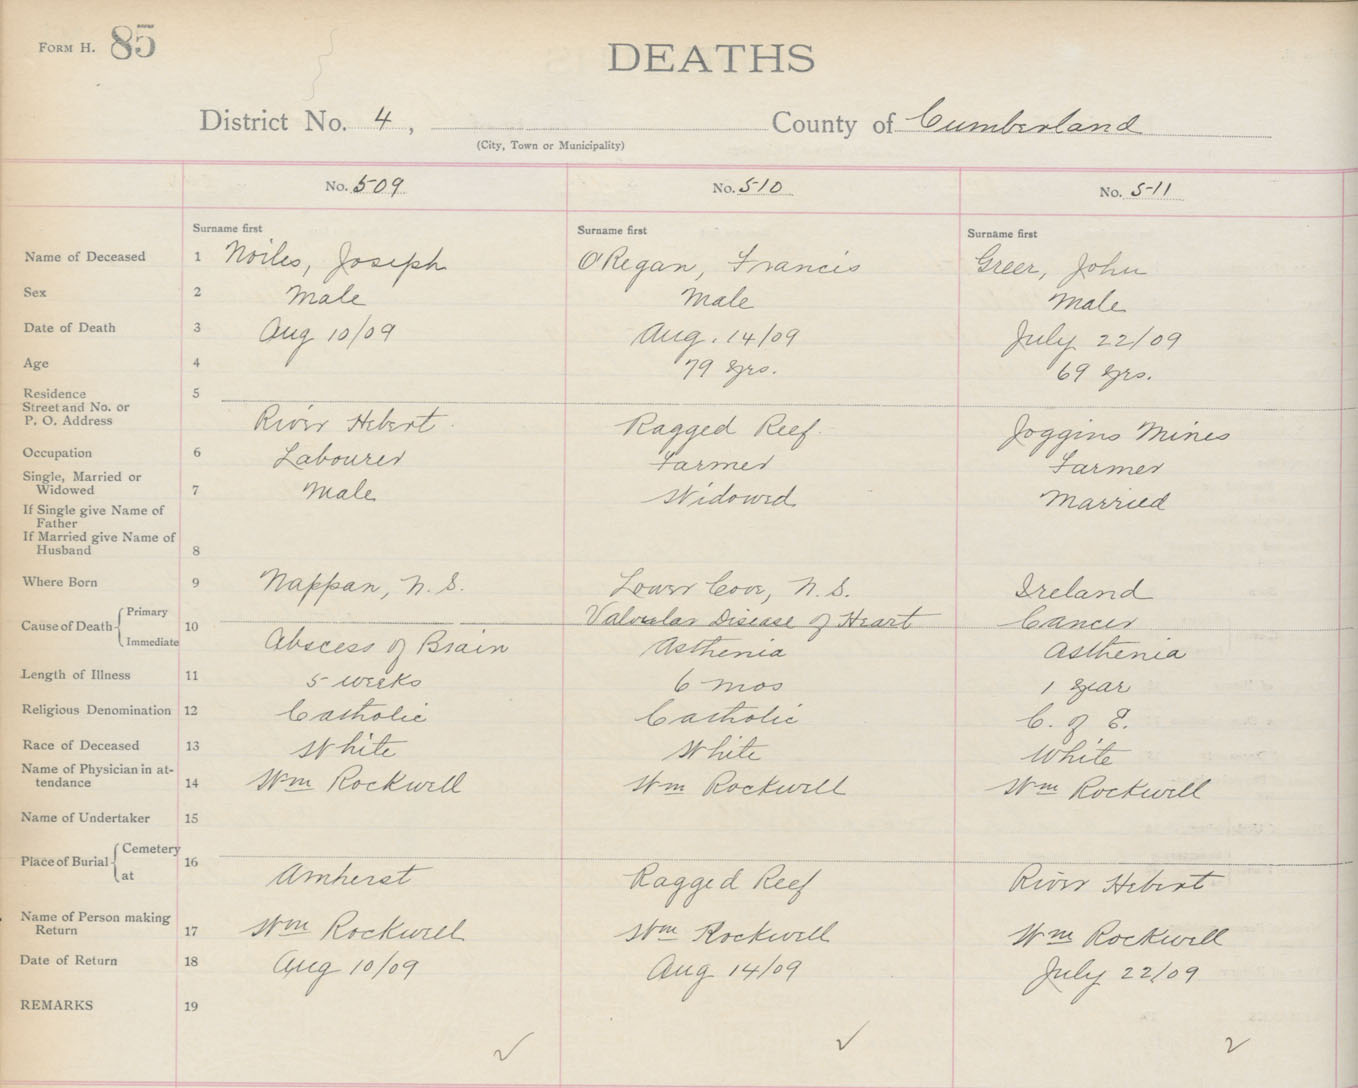 FORM H. 85
DEATHS
District No. 4, County of Cumberland
(City, Town or Municipality)
No. 509 No. 510 No. 511
Surname first Surname first Surname first
Name of Deceased 1 Noiles, Joseph O'Regan, Francis Greer, John
Sex 2 Male Male Male
Date of Death 3 Aug 10/09 Aug. 14/09 July 22/09
Age 4 79 yrs. 69 yrs.
Residence 5
Street and No. or
P. O. Address River Hebert Ragged Reef Joggins Mines
Occupation 6 Labourer Farmer Farmer
Single, Married or
Widowed 7 Male Widowed Married
If Single give Name of
Father
If Married give Name of
Husband 8
Where Born 9 Nappan, N.S. Lower Cove, N.S. Ireland
Cause of Death 10 Primary Valvular Disease of Heart Cancer
Immediate Abscess of Brain Asthenia Asthenia
Length of Illness 11 5 weeks 6 mos 1 year
Religious Denomination 12 Catholic Catholic C. of E.
Race of Deceased 13 White White White
Name of Physician in at-
tendance 14 Wm Rockwell Wm Rockwell Wm Rockwell
Name of Undertaker 15
Place of Burial 16 Cemetery
at Amherst Ragged Reef River Hebert
Name of Person making
Return 17 Wm Rockwell Wm Rockwell Wm Rockwell
Date of Return 18 Aug 10/09 Aug 14/09 July 22/09
REMARKS 19